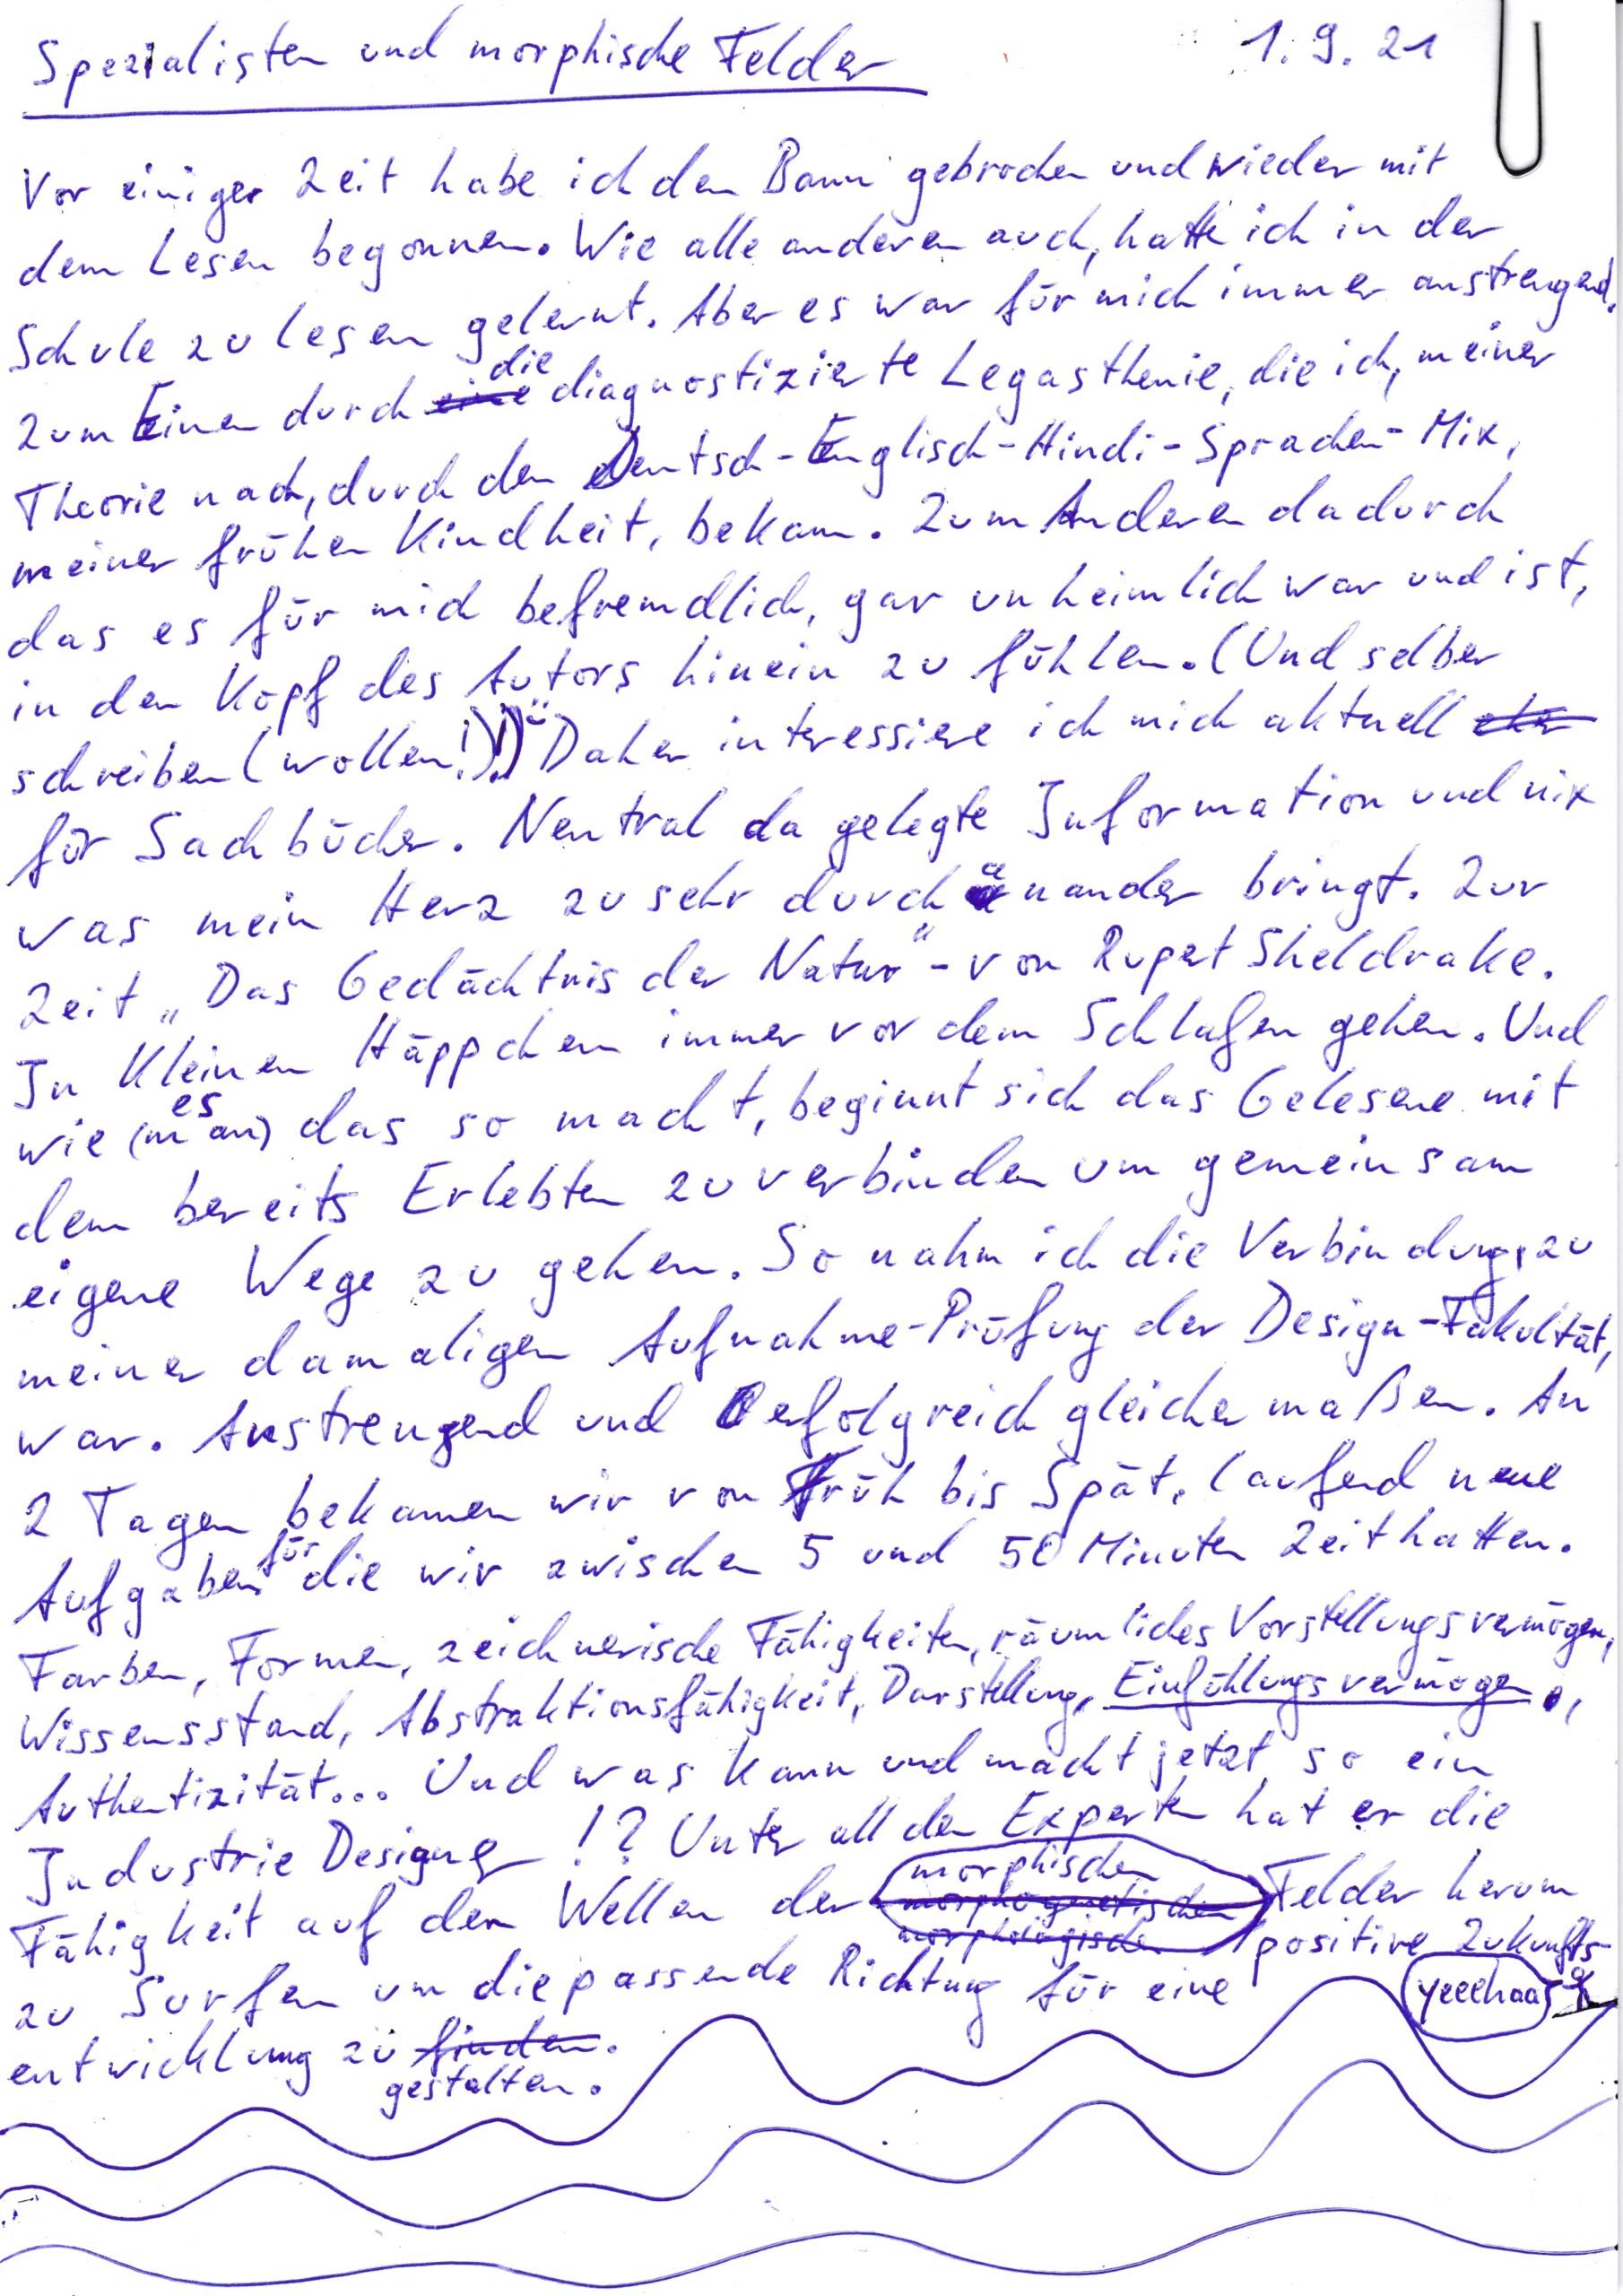 Spezialisten und morphische Felder 1.9.21
Vor einiger Zeit habe ich den Bann gebrochen und wieder mit
dem Lesen begonnen. Wie alle anderen auch, hatte ich in der
Schule zu lesen gelernt. Aber es war für mich immer anstrengend.
Zum Einen durch eine die diagnostizierte Legasthenie, die ich, meiner
Theorie nach, durch den Deutsch-Englisch-Hindi-Sprachen-Mix,
meiner frühen Kindheit, bekam. Zum Anderen dadurch
das es für mich befremdlich, gar unheimlich war und ist,
in den Kopf des Autors hinein zu fühlen. (Und selber
schreiben (wollen!)!) Daher interessiere ich mich aktuell eher
für Sachbücher. Neutral da gelegte Information und nix
was mein Herz zu sehr durchänander bringt. Zur
Zeit „Das Gedächtnis der Natur" - von Rupert Sheldrake.
In Kleinen Häppchen immer vor dem Schlafen gehen. Und
wie (man) es das so macht, beginnt sich das Gelesene mit
dem bereits Erlebten zu verbinden um gemeinsam
eigene Wege zu gehen. So nahm ich die Verbindung, zu
meiner damaligen Aufnahme-Prüfung der Design-Fakultät,
war. Anstrengend und erfolgreich gleicher maßen. An
2 Tagen bekamen wir von Früh bis Spät, laufend neue
Aufgaben für die wir zwischen 5 und 50 Minuten Zeit hatten.
Farben, Formen, zeichnerische Fähigkeiten, räumliches Vorstellungsvermögen,
Wissensstand, Abstraktionsfähigkeit, Darstellung, Einfühlungsvermögen,
Authentizität... Und was kann und macht jetzt so ein
Industrie Designer !? Unter all den Experten hat er die
Fähigkeit auf den Wellen der morphischen morphogenetischen morphologischen Felder herum
zu Surfen um die passende Richtung für eine positive Zukunfts-
entwicklung zu finden. gestalten.
yeeehaa